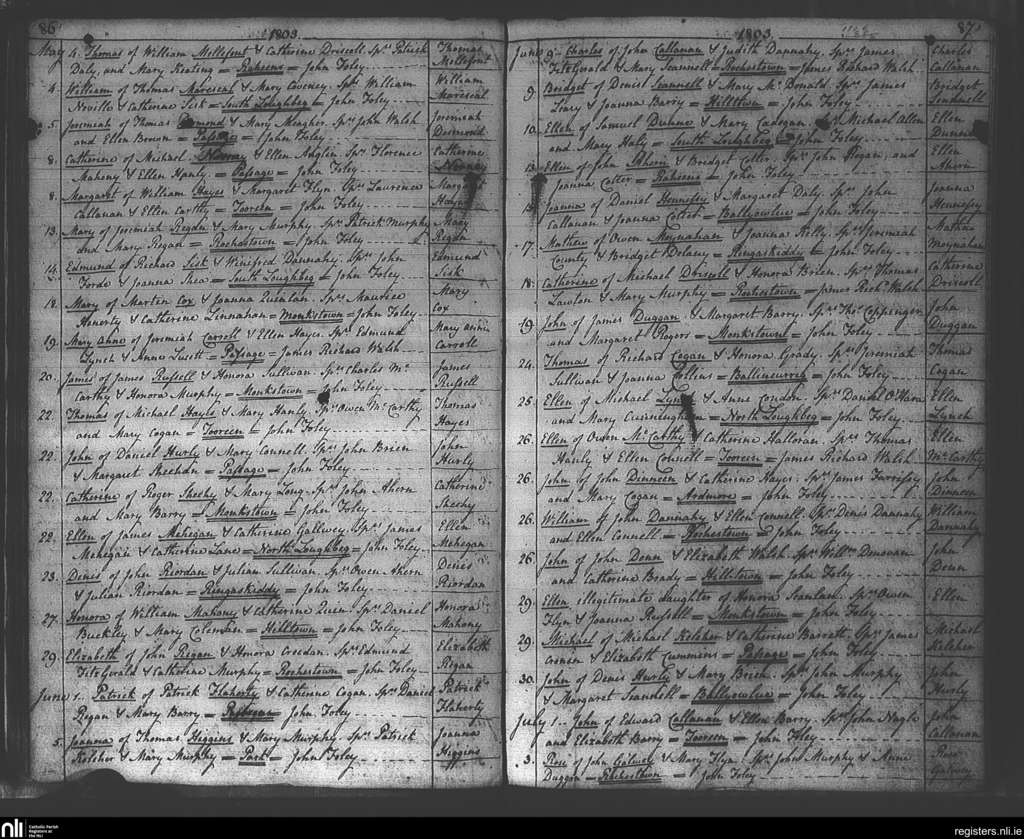 86
1803
May 4. Thomas of William Mellefont & Catherine Driscoll. Sprs Patrick
Daly, and Mary Keating = Raheens = John Foley
Thomas
Mellefont
4. William of Thomas Marescal & Mary Coveney. Sprs William
Neville & Catherine Sisk = South Loughbeg = John Foley
William
Marescal
5. Jeremiah of Thomas & Mary Meagher. Sprs John Walsh
and Ellen Brown = Passage = John Foley
Jeremiah
Desmond
8. Catherine of Michael & Ellen Anglin. Sprs Florence
Mahony & Ellen Hanly = Passage = John Foley
Catherine
8. Margaret of William Hayes & Margaret Flyn. Sprs Laurence
Callanan & Ellen Carthy = Tooreen = John Foley
Margaret
Hayes
13. Mary of Jeremiah Regan & Mary Murphy. Sprs Patrick Murphy
and Mary Regan = Rochestown = John Foley
Mary
Regan
14. Edmund of Richard Sisk & Winifred Dannahy. Sprs John
Forde & Joanna Shea = South Loughbeg = John Foley
Edmund
Sisk
18. Mary of Martin Cox & Joanna Quinlan. Sprs Maurice
Henerty & Catherine Linnahan = Monkstown = John Foley
Mary
Cox
19. Mary Anne of Jeremiah Carroll & Ellen Hayes. Sprs Edmund
Lynch & Anne = Passage = James Richard Walsh
Mary Anne
Carroll
20. James of James Russell & Honora Sullivan. Sprs Charles Mc
Carthy & Honora Murphy = Monkstown = John Foley
James
Russell
22. Thomas of Michael Hayes & Mary Hanly. Sprs Owen McCarthy
and Mary Cogan = Tooreen = John Foley
Thomas
Hayes
22. John of Daniel Hurly & Mary Connell. Sprs John Brien
& Margaret Sheehan = Passage = John Foley
John
Hurly
22. Catherine of Roger Sheehy & Mary Long. Sprs John Ahern
and Mary Barry = Monkstown = John Foley
Catherine
Sheehy
22. Ellen of James Mehegan & Catherine Gallwey. Sprs James
Mehegan & Catherine Lane = North Loughbeg = John Foley
Ellen
Mehegan
23. Denis of John Riordan & Julian Sullivan. Sprs Owen Ahern
& Julian Riordan = Ringaskiddy = John Foley
Denis
Riordan
27. Honora of William Mahony & Catherine Quin. Sprs Daniel
Buckley & Mary Coleman = Hilltown = John Foley
Honora
Mahony
29. Elizabeth of John Regan & Honora Creedan. Sprs Edmund
FitzGerald & Catherine Murphy = Rochestown = John Foley
Elizabeth
Regan
June 1. Patrick of Patrick Flaherty & Catherine Cogan. Sprs Daniel
Regan & Mary Barry = = John Foley
Patrick
Flaherty
5. Joanna of Thomas Higgins & Mary Murphy. Sprs Patrick
Kelcher & Mary Murphy = = John Foley
Joanna
Higgins
87
1803
June 9. Charles of John Callanan & Judith Dannahy. Sprs James
FitzGerald & Mary Scannell = Rochestown = James Richard Walsh
Charles
Callanan
9. Bridget of Denis Scannell & Mary McDonald. Sprs James
Leary & Joanna Barry = Hilltown = John Foley
Bridget
Scannell
10. Ellen of Samuel Dunne & Mary Cadogan. Sprs Michael Allen
and Mary Haly = South Loughbeg = John Foley
Ellen
Dunne
13. Ellen of John Ahern & Bridget Colter. Sprs John Hogan, and
Joanna Colter = Raheens = John Foley
Ellen
Ahern
Joanna of Daniel Hennessy & Margaret Daly. Sprs John
Callanan & Joanna Colter = Ballyowlue = John Foley
Joanna
Hennessy
17. Mathew of Owen Moynahan & Joanna Kelly. Sprs Jeremiah
County & Bridget Delany = Ringaskiddy = John Foley
Mathew
Moynahan
18. Catherine of Michael Driscoll & Honora Brien. Sprs Thomas
Lawlan & Mary Murphy = Rochestown = James Richd Walsh
Catherine
Driscoll
19. John of James Duggan & Margaret Barry. Sprs Thos Coppinger
and Margaret Rogers = Monkstown = John Foley
John
Duggan
24. Thomas of Richard Cogan & Honora Grady. Sprs Jeremiah
Sullivan & Joanna Collins = Ballincurrig = John Foley
Thomas
Cogan
25. Ellen of Michael Lynch & Anne Condon. Sprs Daniel O'Hara
and Mary Cunningham = North Loughbeg = John Foley
Ellen
Lynch
26. Ellen of Owen McCarthy & Catherine Halloran. Sprs Thomas
Hanly & Ellen Connell = Tooreen = James Richard Walsh
Ellen
McCarthy
26. John of John Dinneen & Catherine Hayes. Sprs James
and Mary Cogan = Ardmore = John Foley
John
Dinneen
26. William of John Dannahy & Ellen Connell. Sprs Denis Dannahy
and Ellen Connell = Rochestown = John Foley
William
Dannahy
26. John of John Dunn & Elizabeth Walsh. Sprs Willm Donovan
and Catherine Brady = Hilltown = John Foley
John
Dunn
29. Ellen illegitimate daughter of Honora Scanlan. Sprs Owen
Flyn & Joanna Russell = Monkstown = John Foley
Ellen
29. Michael of Michael Kelcher & Catherine Barrett. Sprs James
Cronin & Elizabeth Cummins = Passage = John Foley
Michael
Kelcher
30. John of Denis Hurly & Mary Brien. Sprs John Murphy
& Margaret Scandell = Ballyowlue = John Foley
John
Hurly
July 1. John of Edward Callanan & Ellen Barry. Sprs John Nagle
and Elizabeth Barry = Tooreen = John Foley
John
Callanan
3. Rose of John Galwey & Mary Flyn. Sprs John Murphy & Anne
Duggan = Rochestown = John Foley
Rose
Galwey
nli
Catholic Parish
Registers at
the NLI
registers.nli.ie